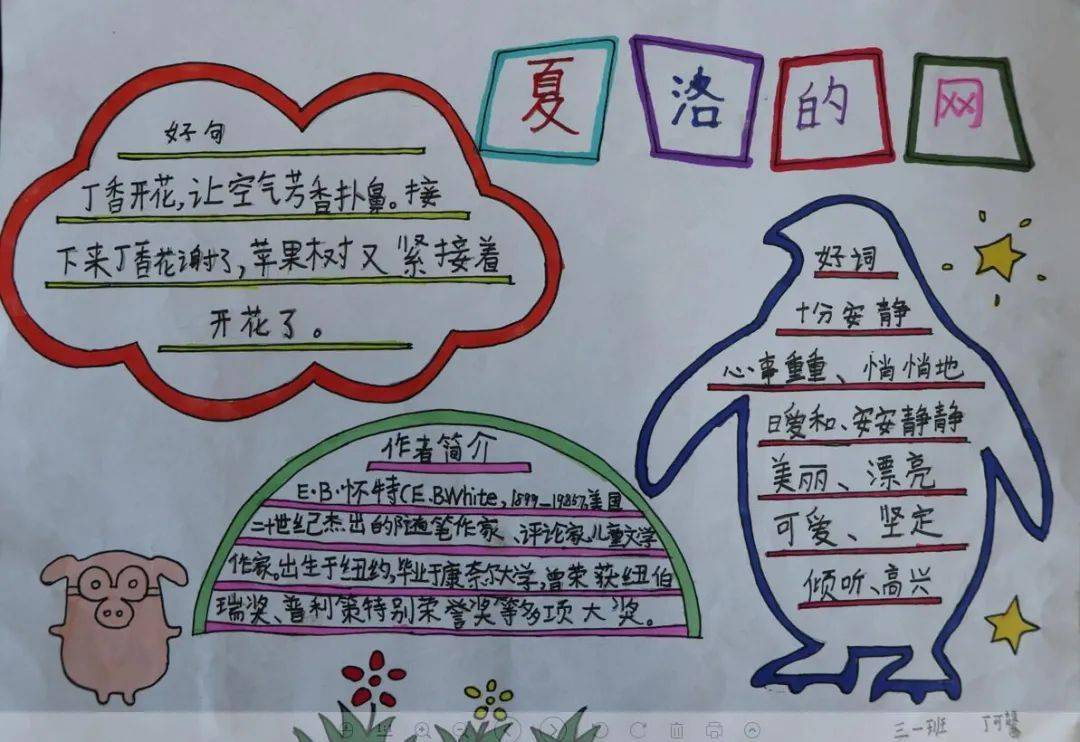 夏洛的网
好句
丁香开花,让空气芳香扑鼻。接
下来丁香花谢了,苹果树又紧接着
开花了。
好词
十分安静
心事重重、悄悄地
暖和、安安静静
美丽、漂亮
可爱、坚定
倾听、高兴
作者简介
E·B·怀特(E.B.White,1899—1985),美国
二十世纪杰出的随笔作家、评论家、儿童文学
作家。出生于纽约,毕业于康奈尔大学,曾荣获纽伯
瑞奖、普利策特别荣誉奖等多项大奖。
三一班